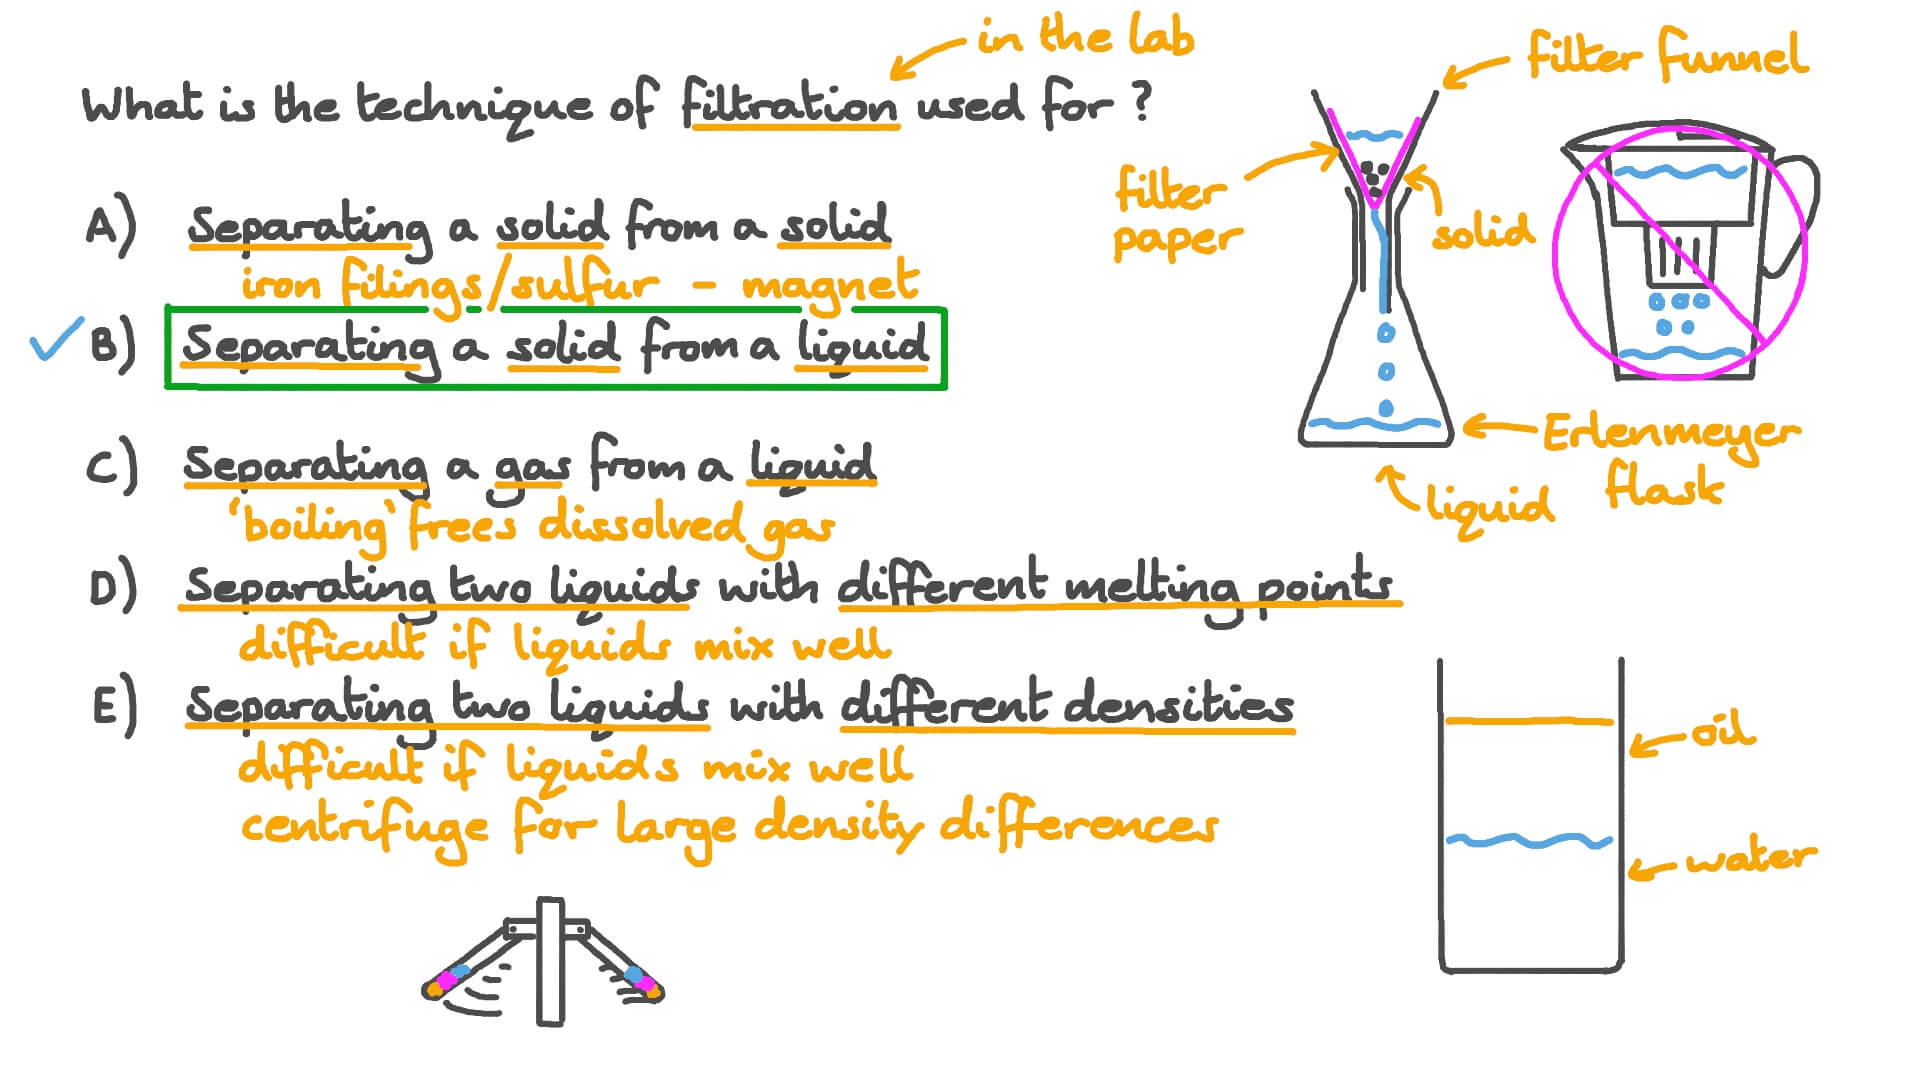 in the lab
What is the technique of filtration used for ?
A) Separating a solid from a solid
iron filings/sulfur - magnet
B) Separating a solid from a liquid
C) Separating a gas from a liquid
'boiling' frees dissolved gas
D) Separating two liquids with different melting points
difficult if liquids mix well
E) Separating two liquids with different densities
difficult if liquids mix well
centrifuge for large density differences
filter funnel
filter
paper
solid
Erlenmeyer
flask
liquid
oil
water